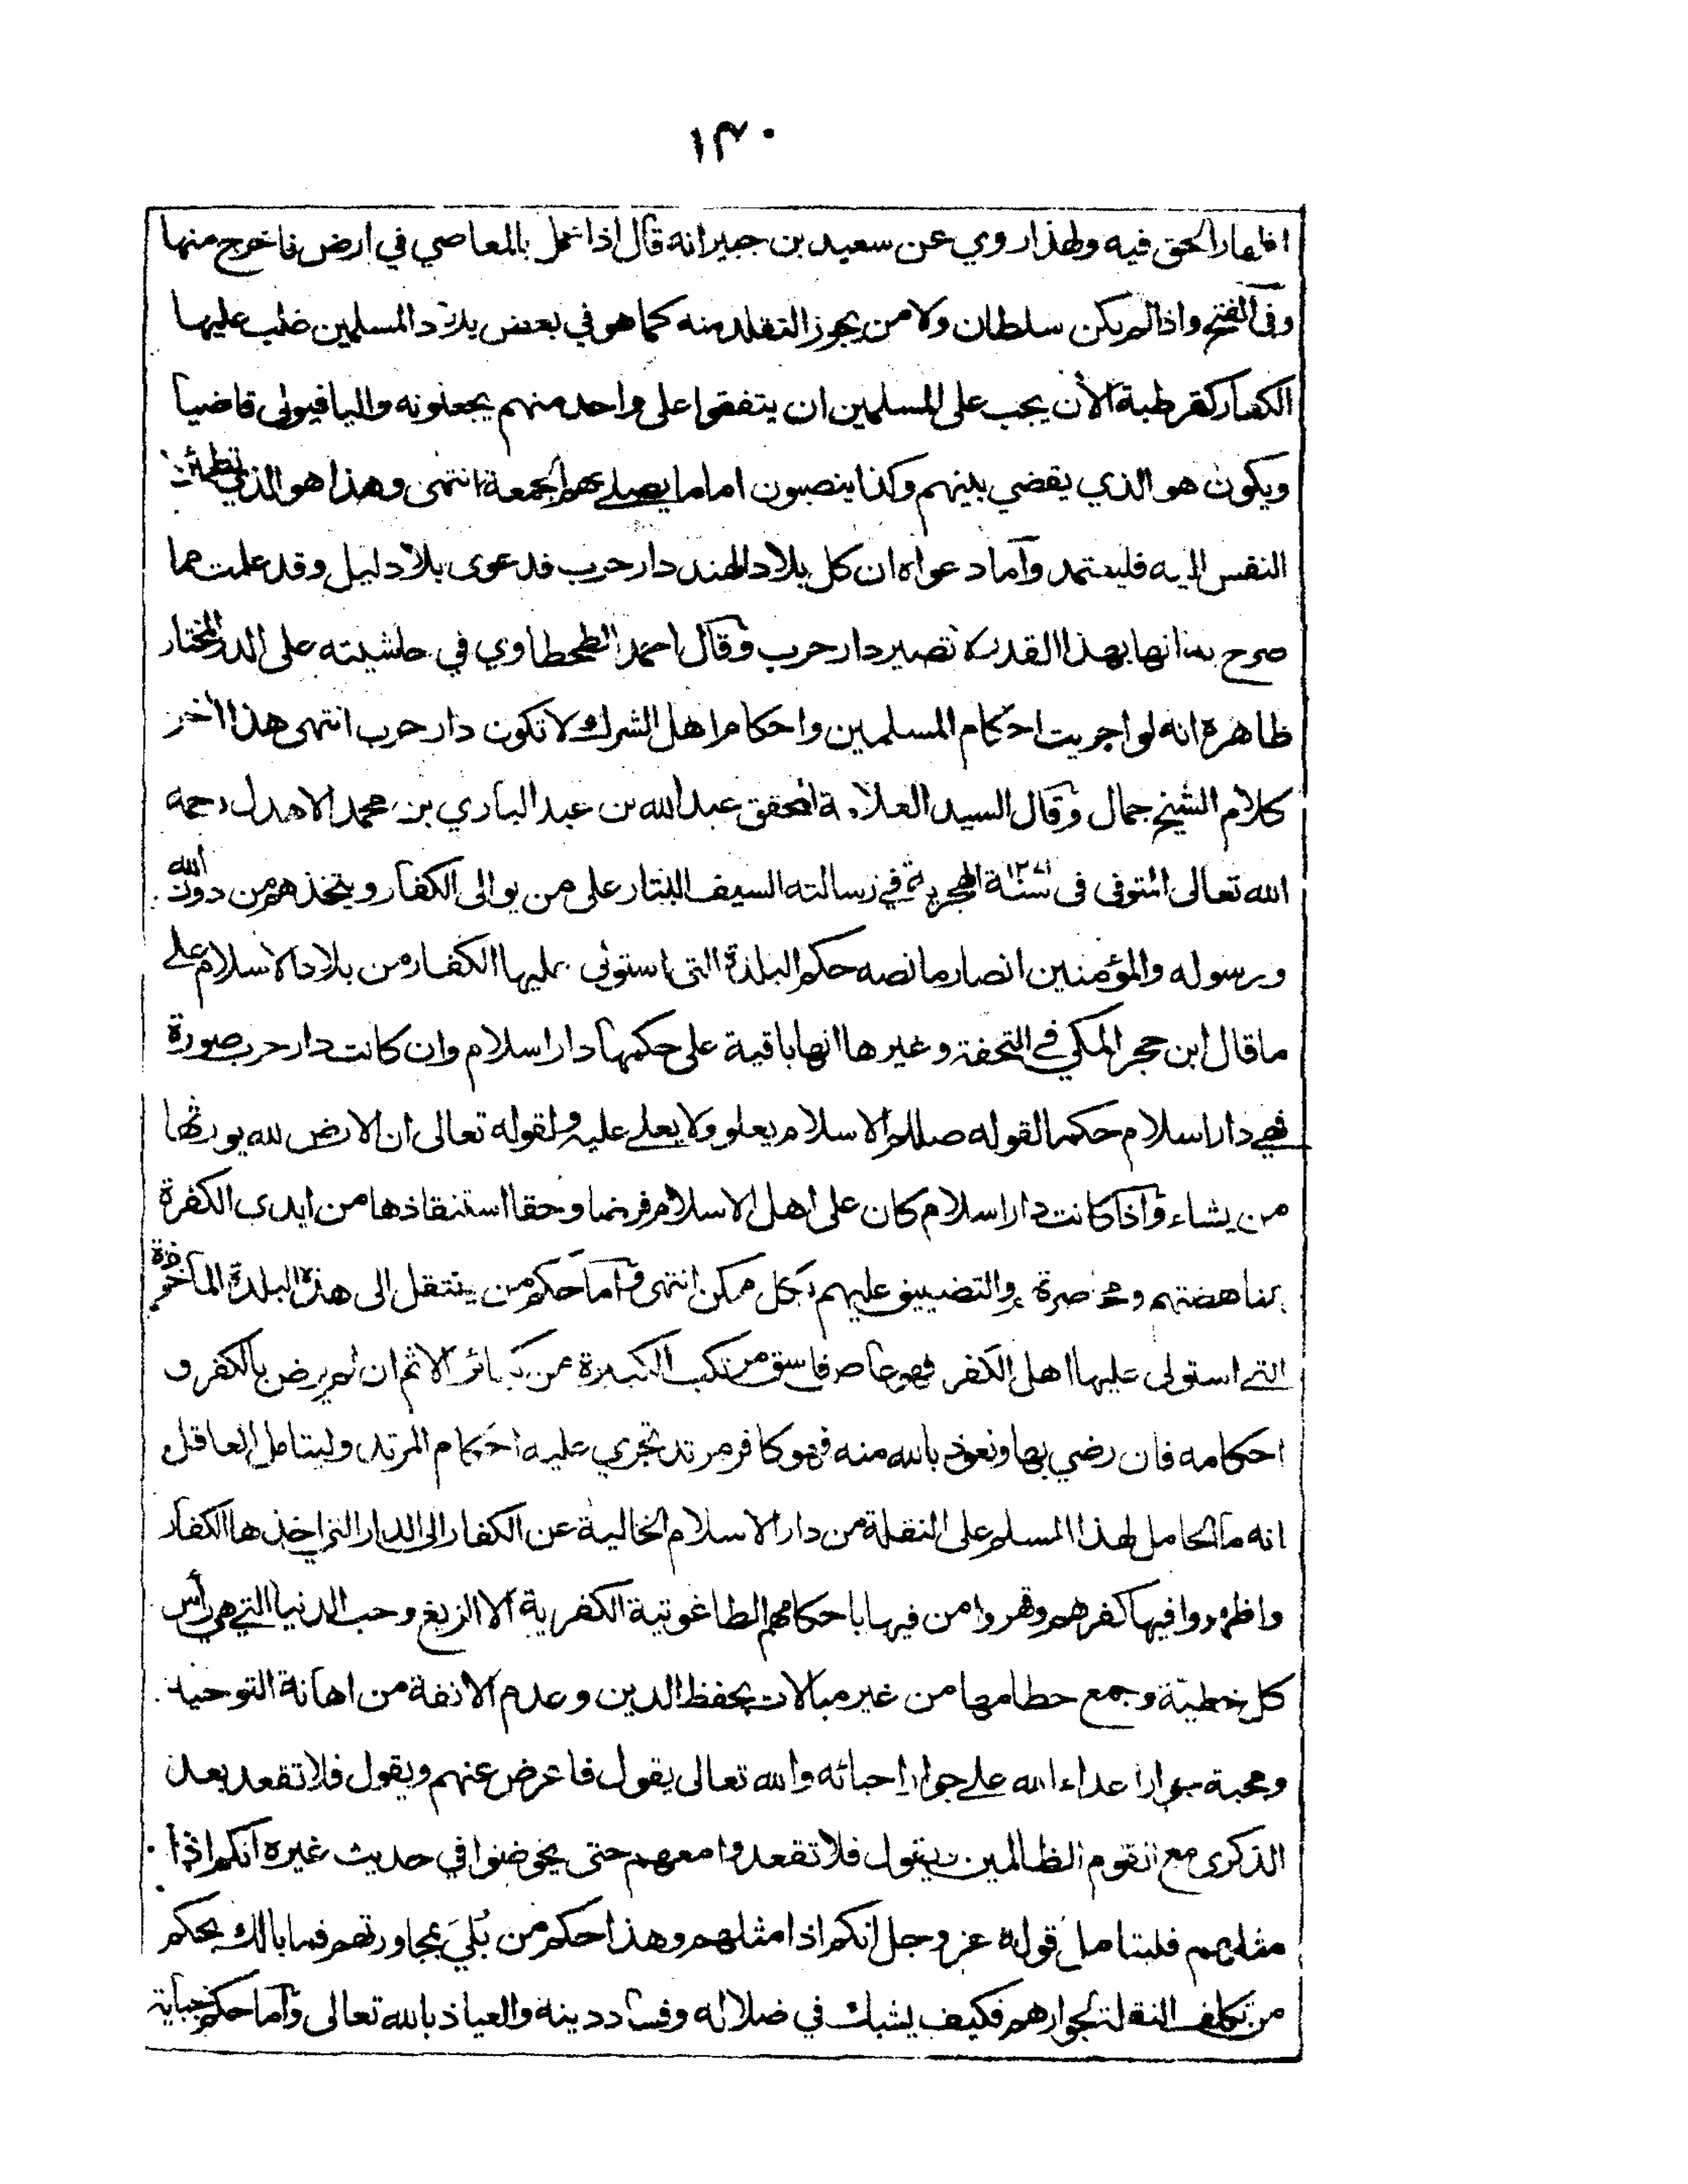 ١٣٠
اظهار الحق فيه ولهذا روي عن سعيد بن جبير انه قال اذا عمل بالمعاصي في ارض فاخرج منها
وفى الفتح واذا لم يكن سلطان ولا من يجوز التقلد منه كما هو في بعض بلاد المسلمين غلب عليها
الكفار كقرطبة الأن يجب على المسلمين ان يتفقوا على واحد منهم يجعلونه واليا فيولى قاضيا
ويكون هو الذي يقضي بينهم وكذا ينصبون اماما يصلے بهم الجمعة انتهى وهذا هو الذي تطمئن
النفس اليه فليعتمد وأما دعواه ان كل بلاد الهند دار حرب فدعوى بلا دليل وقد علمت مما
صرح به انها بهذا القدر لا تصير دار حرب وقال احمد الطحطاوي في حاشيته على الدر المختار
ظاهره انه لو اجريت احكام المسلمين واحكام اهل الشرك لا تكون دار حرب انتهى هذا اخر
كلام الشيخ جمال وقال السيد العلامة المحقق عبد الله بن عبد الباري بن محمد الاهدل رحمه
الله تعالى المتوفى فى سنة ١٢٧١ الهجرية في رسالته السيف البتار على من يوالى الكفار ويتخذهم من دون الله
ورسوله والمؤمنين انصار ما نصه حكم البلدة التى استولى عليها الكفار من بلاد الاسلام علے
ما قال ابن حجر المكي في التحفة وغيرها انها باقية على حكمها دار اسلام وان كانت دار حرب صورة
فهي دار اسلام حكما لقوله صللم الاسلام يعلو ولا يعلے عليه ولقوله تعالى ان الارض لله يورثها
من يشاء واذا كانت دار اسلام كان على اهل الاسلام فرضا وحقا استنقاذها من ايدى الكفرة
بمناهضتهم و والتضييق عليهم بكل ممكن انتهى وأما حكم من ينتقل الى هذه البلدة المأخوذة
التے استولى عليها اهل الكفر فهو عاص فاسق مرتكب الكبيرة من كبائر الاثم ان لم يرض بالكفر و
احكامه فان رضي بها ونعوذ بالله منه فهو كافر مرتد تجري عليه احكام المرتد وليتامل العاقل
انه ما الحامل لهذا المسلم على النقلة من دار الاسلام الخالية عن الكفار الى الديار التى اخذها الكفار
واظهروا فيها كفرهم وقهروا من فيها باحكامهم الطاغوتية الكفرية الا الزيغ وحب الدنيا التے هي رأس
كل خطيئة وجمع حطامها من غير مبالات بحفظ الدين وعدم الانفة من اهانة التوحيد
ومحبة جوار اعداء الله علے جوار احبائه والله تعالى يقول فاعرض عنهم ويقول فلا تقعد بعد
الذكرى مع القوم الظالمين ويقول فلا تقعدوا معهم حتى يخوضوا في حديث غيره انكم اذا
مثلهم فليتامل قوله عز وجل انكم اذا مثلهم وهذا حكم من بُلي بمجاورتهم فما بالك بحكم
من تكلف النقلة لجوارهم فكيف يشك في ضلاله وفساد دينه والعياذ بالله تعالى وأما حكم جباية